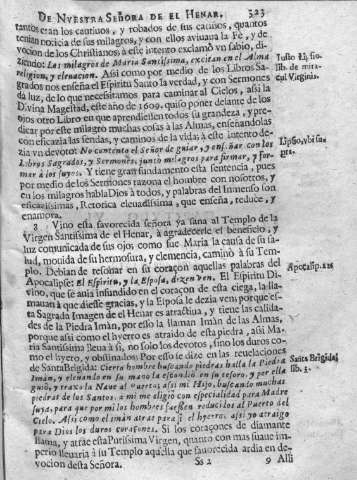 DE NVESTRA SEÑORA DE EL HENAR. 323
tantos eran los cautiuos, y robados de sus cautiuos, quantos
tenian noticia de sus milagros, y con ellos auiuaua la Fè, y de
uocion de los Christianos; à este intento exclamò vn sabio, di-
ziendo: Las milagros de Maria Santissima, excitan en el Alma
religion, y eleuacion. Assi como por medio de los Libros Sa-
grados nos enseña el Espiritu Santo la verdad, y con Sermones
da luz, de lo que necessitamos para caminar al Cielos, assi la
Divina Magestad, este año de 1609. quiso poner delante de los
ojos otro Libro en que aprendiessen todos su grandeza, y pre-
dicar por este milagro muchas cosas à las Almas, enseñandolas
con eficazia las sendas, y caminos de la vida; à este intento de-
zia vn devoto: No contento el Señor de guiar, y enseñar con los
Libros Sagrados, y Sermones, junto milagros para formar, y for-
mar à los suyos. Y tiene gran fundamento esta sentencia, pues
por medio de los Sermones razona el hombre con nosotros, y
en los milagros habla Dios à todos, y palabras del Inmenso son
eficacissimas, Retorica eleuadissima, que enseña, reduce, y
enamora.
8 Vino esta favorecida señora ya sana al Templo de la
Virgen Santissima de el Henar, à agradecerle el beneficio, y
luz comunicada de sus ojos; como fue Maria la causa de su sa-
lud, mouida de su hermosura, y clemencia, caminò à su Tem-
plo. Debian de resonar en su coraçon aquellas palabras del
Apocalipse: El Espiritu, y la Esposa, dizen ven. El Espiritu Di-
vino, que se auia infundido en el coraçon de esta ciega, la lla-
mauan à que diesse gracias, y la Esposa le dezia ven; porque es-
ta Sagrada Imagen de el Henar es atractiua, y tiene las calida-
des de la Piedra Imàn, por esso la llaman Imàn de las Almas,
porque assi como el hyerro es atraido de esta piedra, assi Ma-
ria Santissima lleua à sì, no solo los devotos, sino los duros co-
mo el hyerro, y obstinados; Por esso se dize en las revelaciones
de Santa Brigida: Cierto hombre buscando piedras halla la Piedra
Imàn, y eleuandola en su mano la escondiò en su tesoro, y por ella
guiò, y traxo la Naue al puerto; assi mi Hijo, buscando muchas
piedras de los Santos. à mi me eligiò con especialidad para Madre
suya, para que por mi los hombres fuessen reducidos al Puerto del
Cielo. Assi como el Imàn atrae para sì el hyerro; assi yo atraigo
para Dios los duros coraçones. Si los coraçones de diamante
llama, y atrae esta Purissima Virgen, quanto con mas suaue im-
perio lleuaria à su Templo aquella que favorecida ardia en de-
vocion desta Señora.
Ss 2 9 Assi
Justo Lipsio,
lib. de mira-
cul Virginis.
Lipsio, vbi su-
pra.
Apocalip. 22
Santa Brigida,
lib. 3.